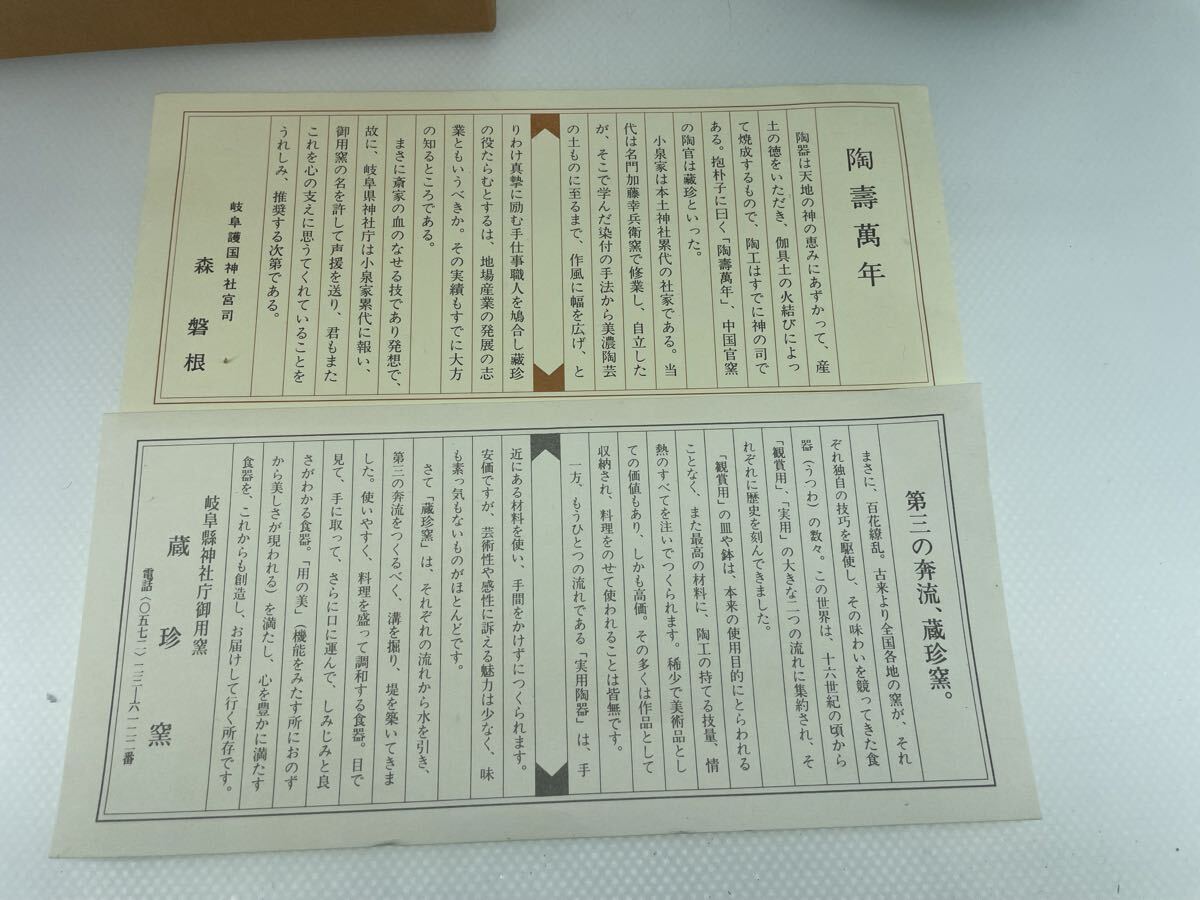 陶壽萬年
陶器は天地の神の恵みにあずかって、産
土の徳をいただき、伽具土の火結びによっ
て焼成するもので、陶工はすでに神の司で
ある。抱朴子に曰く「陶壽萬年」、中国官窯
の陶官は藏珍といった。
小泉家は本土神社累代の社家である。当
代は名門加藤幸兵衛窯で修業し、自立した
が、そこで学んだ染付の手法から美濃陶芸
の土ものに至るまで、作風に幅を広げ、と
りわけ真摯に励む手仕事職人を鳩合し藏珍
の役たらむとするは、地場産業の発展の志
業ともいうべきか。その実績もすでに大方
の知るところである。
まさに斎家の血のなせる技であり発想で、
故に、岐阜県神社庁は小泉家累代に報い、
御用窯の名を許して声援を送り、君もまた
これを心の支えに思うてくれていることを
うれしみ、推奨する次第である。
岐阜護国神社宮司
森磐根
第三の奔流、蔵珍窯。
まさに、百花繚乱。古来より全国各地の窯が、それ
ぞれ独自の技巧を駆使し、その味わいを競ってきた食
器（うつわ）の数々。この世界は、十六世紀の頃から
「観賞用」、「実用」の大きな二つの流れに集約され、そ
れぞれに歴史を刻んできました。
「観賞用」の皿や鉢は、本来の使用目的にとらわれる
ことなく、また最高の材料に、陶工の持てる技量、情
熱のすべてを注いでつくられます。稀少で美術品とし
ての価値もあり、しかも高価。その多くは作品として
収納され、料理をのせて使われることは皆無です。
一方、もうひとつの流れである「実用陶器」は、手
近にある材料を使い、手間をかけずにつくられます。
安価ですが、芸術性や感性に訴える魅力は少なく、味
も素っ気もないものがほとんどです。
さて「蔵珍窯」は、それぞれの流れから水を引き、
第三の奔流をつくるべく、溝を掘り、堤を築いてきま
した。使いやすく、料理を盛って調和する食器。目で
見て、手に取って、さらに口に運んで、しみじみと良
さがわかる食器。「用の美」（機能をみたす所におのず
から美しさが現われる）を満たし、心を豊かに満たす
食器を、これからも創造し、お届けして行く所存です。
岐阜縣神社庁御用窯
蔵珍窯
電話（〇五七二）二三―六一二二番